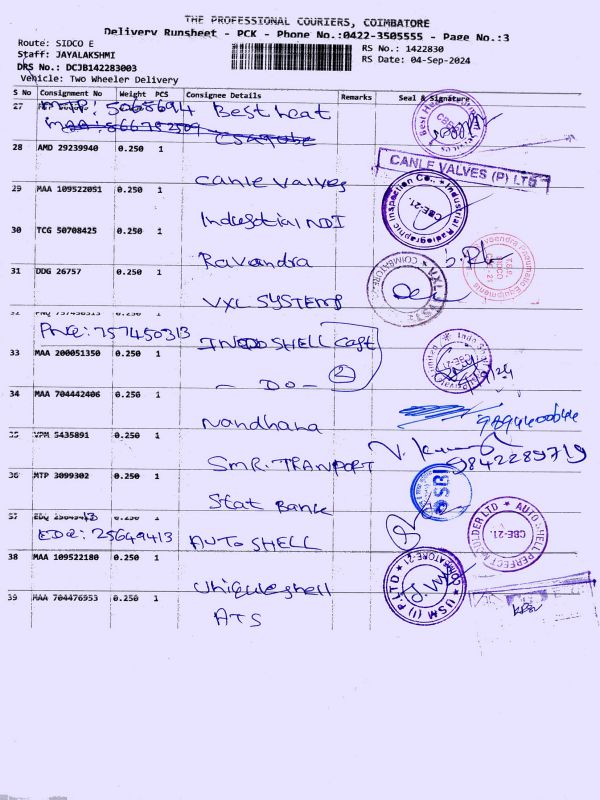 THE PROFESSIONAL COURIERS, COIMBATORE
Delivery Runsheet - PCK - Phone No.:0422-3505555 - Page No.:3
Route: SIDCO E
RS No.: 1422830
Staff: JAYALAKSHMI
RS Date: 04-Sep-2024
DRS No.: DCJB142283003
Vehicle: Two Wheeler Delivery
S No Consignment No Weight PCS Consignee Details Remarks Seal & Signature
27 MTP: 50685694 Best heat
28 AMD 29239940 0.250 1
CANLE VALVES (P) LTD
Canle Valves
29 MAA 109522051 0.250 1
Industrial NDI
Radiographic Inspection Co., Industrial
CBE-21.
30 TCG 50708425 0.250 1
Ravandra
31 DDG 26757 0.250 1
VXL SYSTEMS
COIMBATORE
PNQ: 757450313
INDO SHELL Cast
2
33 MAA 200051350 0.250 1
- DO -
34 MAA 704442406 0.250 1
Nandhana
9894400644
35 VPM 5435891 0.250 1
SMR. TRANPORT
9842289719
36 MTP 3099302 0.250 1
Stat Bank
SBI
EDQ: 25649413
AUTO SHELL
AUTO SHELL PERFECT MOULDER LTD
CBE-21
38 MAA 109522180 0.250 1
Uniqueshell
USM (I) P LTD
COIMBATORE-21
39 MAA 704476953 0.250 1
ATS